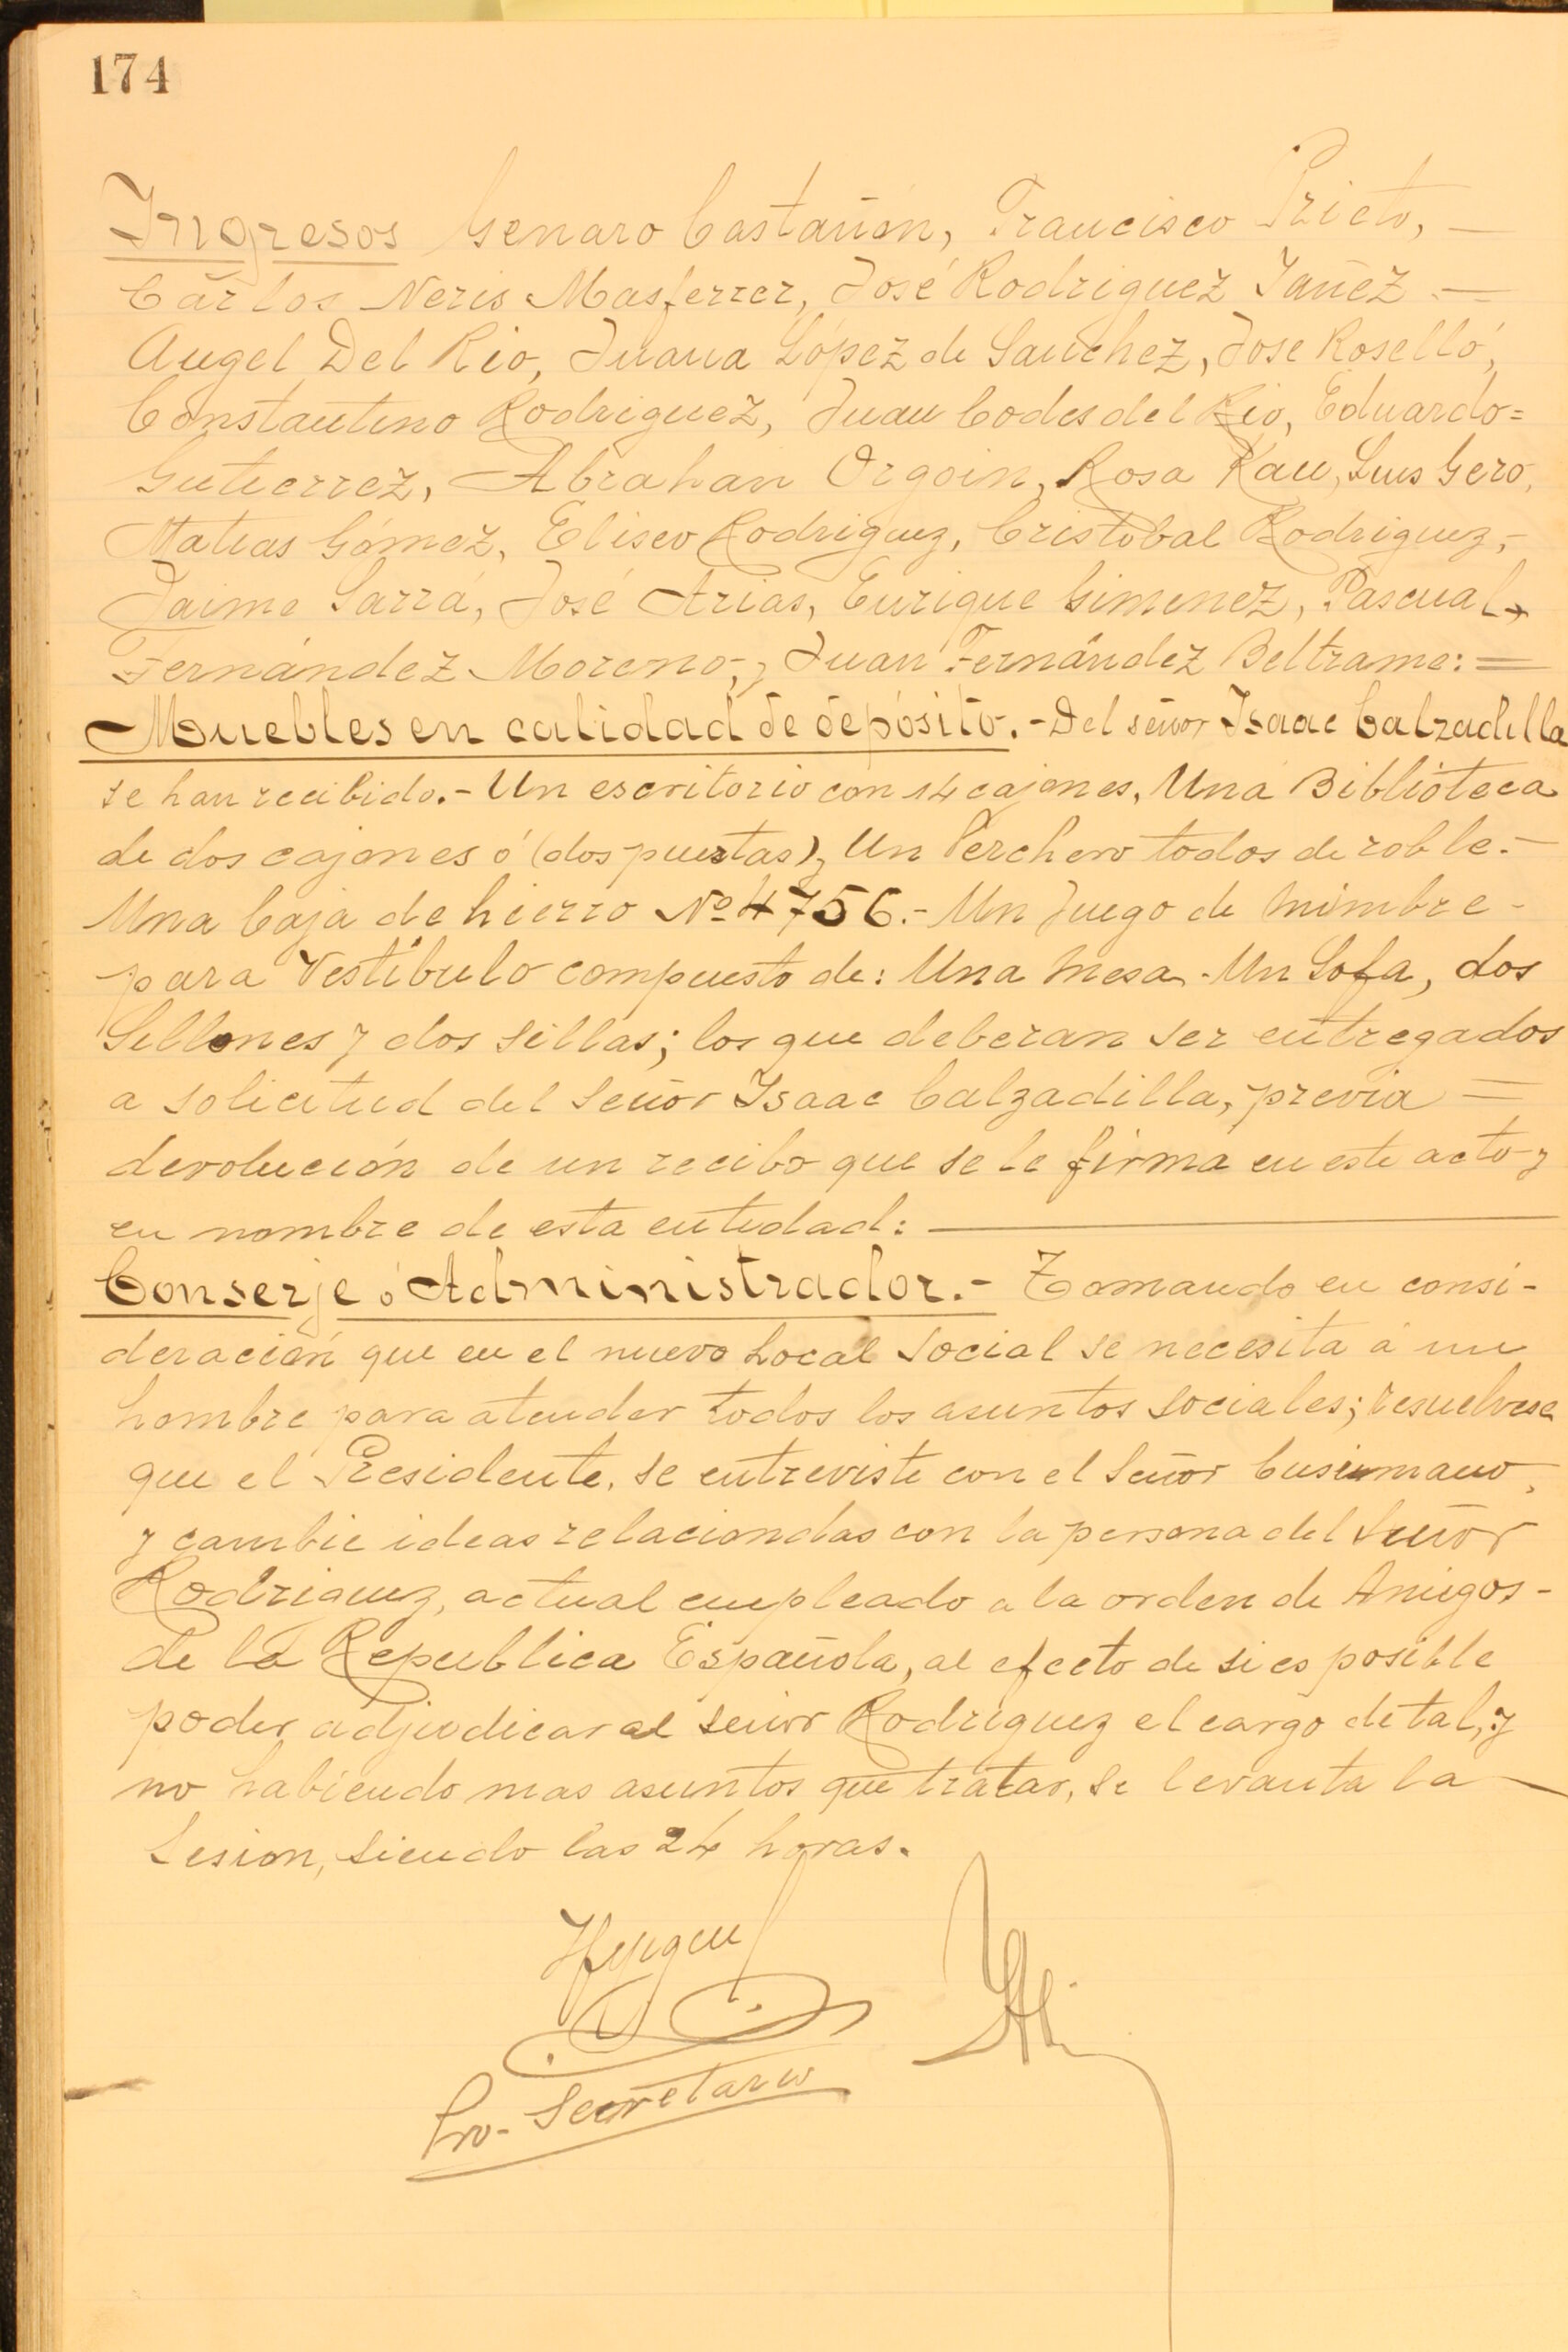 174
Ingresos Genaro Castañón, Francisco Prieto, —
Carlos Neris Masferrer, José Rodriguez Yañez —
Angel Del Rio, Juana López de Sanchez, Jose Roselló,
Constantino Rodriguez, Juan Codes del Rio, Eduardo=
Gutierrez, Abrahan Orgoin, Rosa Kau, Luis Gero,
Matias Gómez, Eliseo Rodriguez, Cristobal Rodriguez,-
Jaime Sarrá, José Arias, Enrique Gimenez, Pascual,
Fernández Moreno, y Juan Fernández Beltrame: =
Muebles en calidad de depósito.- Del señor Isaac Calzadilla
se han recibido.- Un escritorio con 14 cajones, Una Biblioteca
de dos cajones ó (dos puertas) y Un Perchero todos de roble.-
Una Caja de hierro Nº 4756.- Un Juego de mimbre-
para Vestíbulo compuesto de: Una mesa - Un Sofa, dos
Sillones y dos sillas; los que deberan ser entregados
a solicitud del Señor Isaac Calzadilla, previa =
devolución de un recibo que se le firma en este acto y
en nombre de esta entidad: —
Conserje ó Administrador.- Tomando en consi-
deración que en el nuevo Local Social se necesita á un
hombre para atender todos los asuntos sociales; resuelvese
que el Presidente, se entreviste con el Señor Cusinmano,
y cambie ideas relaciondas con la persona del Señor
Rodriguez, actual empleado a la orden de Amigos-
de la Republica Española, al efecto de si es posible
poder adjudicar al señor Rodriguez el cargo de tal, y
no habiendo mas asuntos que tratar, se levanta la —
Sesion, siendo las 24 horas.
Pro-Secretario